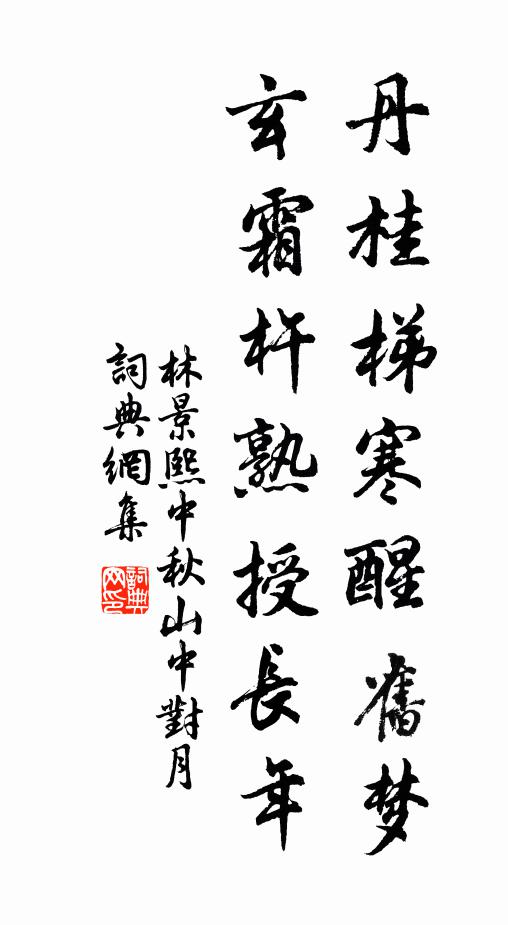 丹桂梯寒醒舊梦
玄霜杵熟授長年
林景熙中秋山中對月
詞典網集
詞典网印